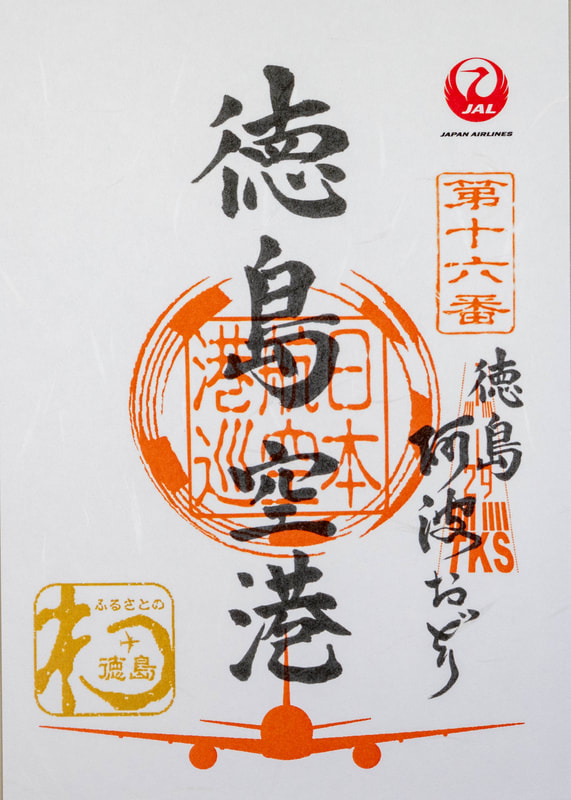 JAL
JAPAN AIRLINES
第十六番
徳島空港
日本
航空
港巡
徳島
阿波おどり
29
TKS
ふるさとの
徳島